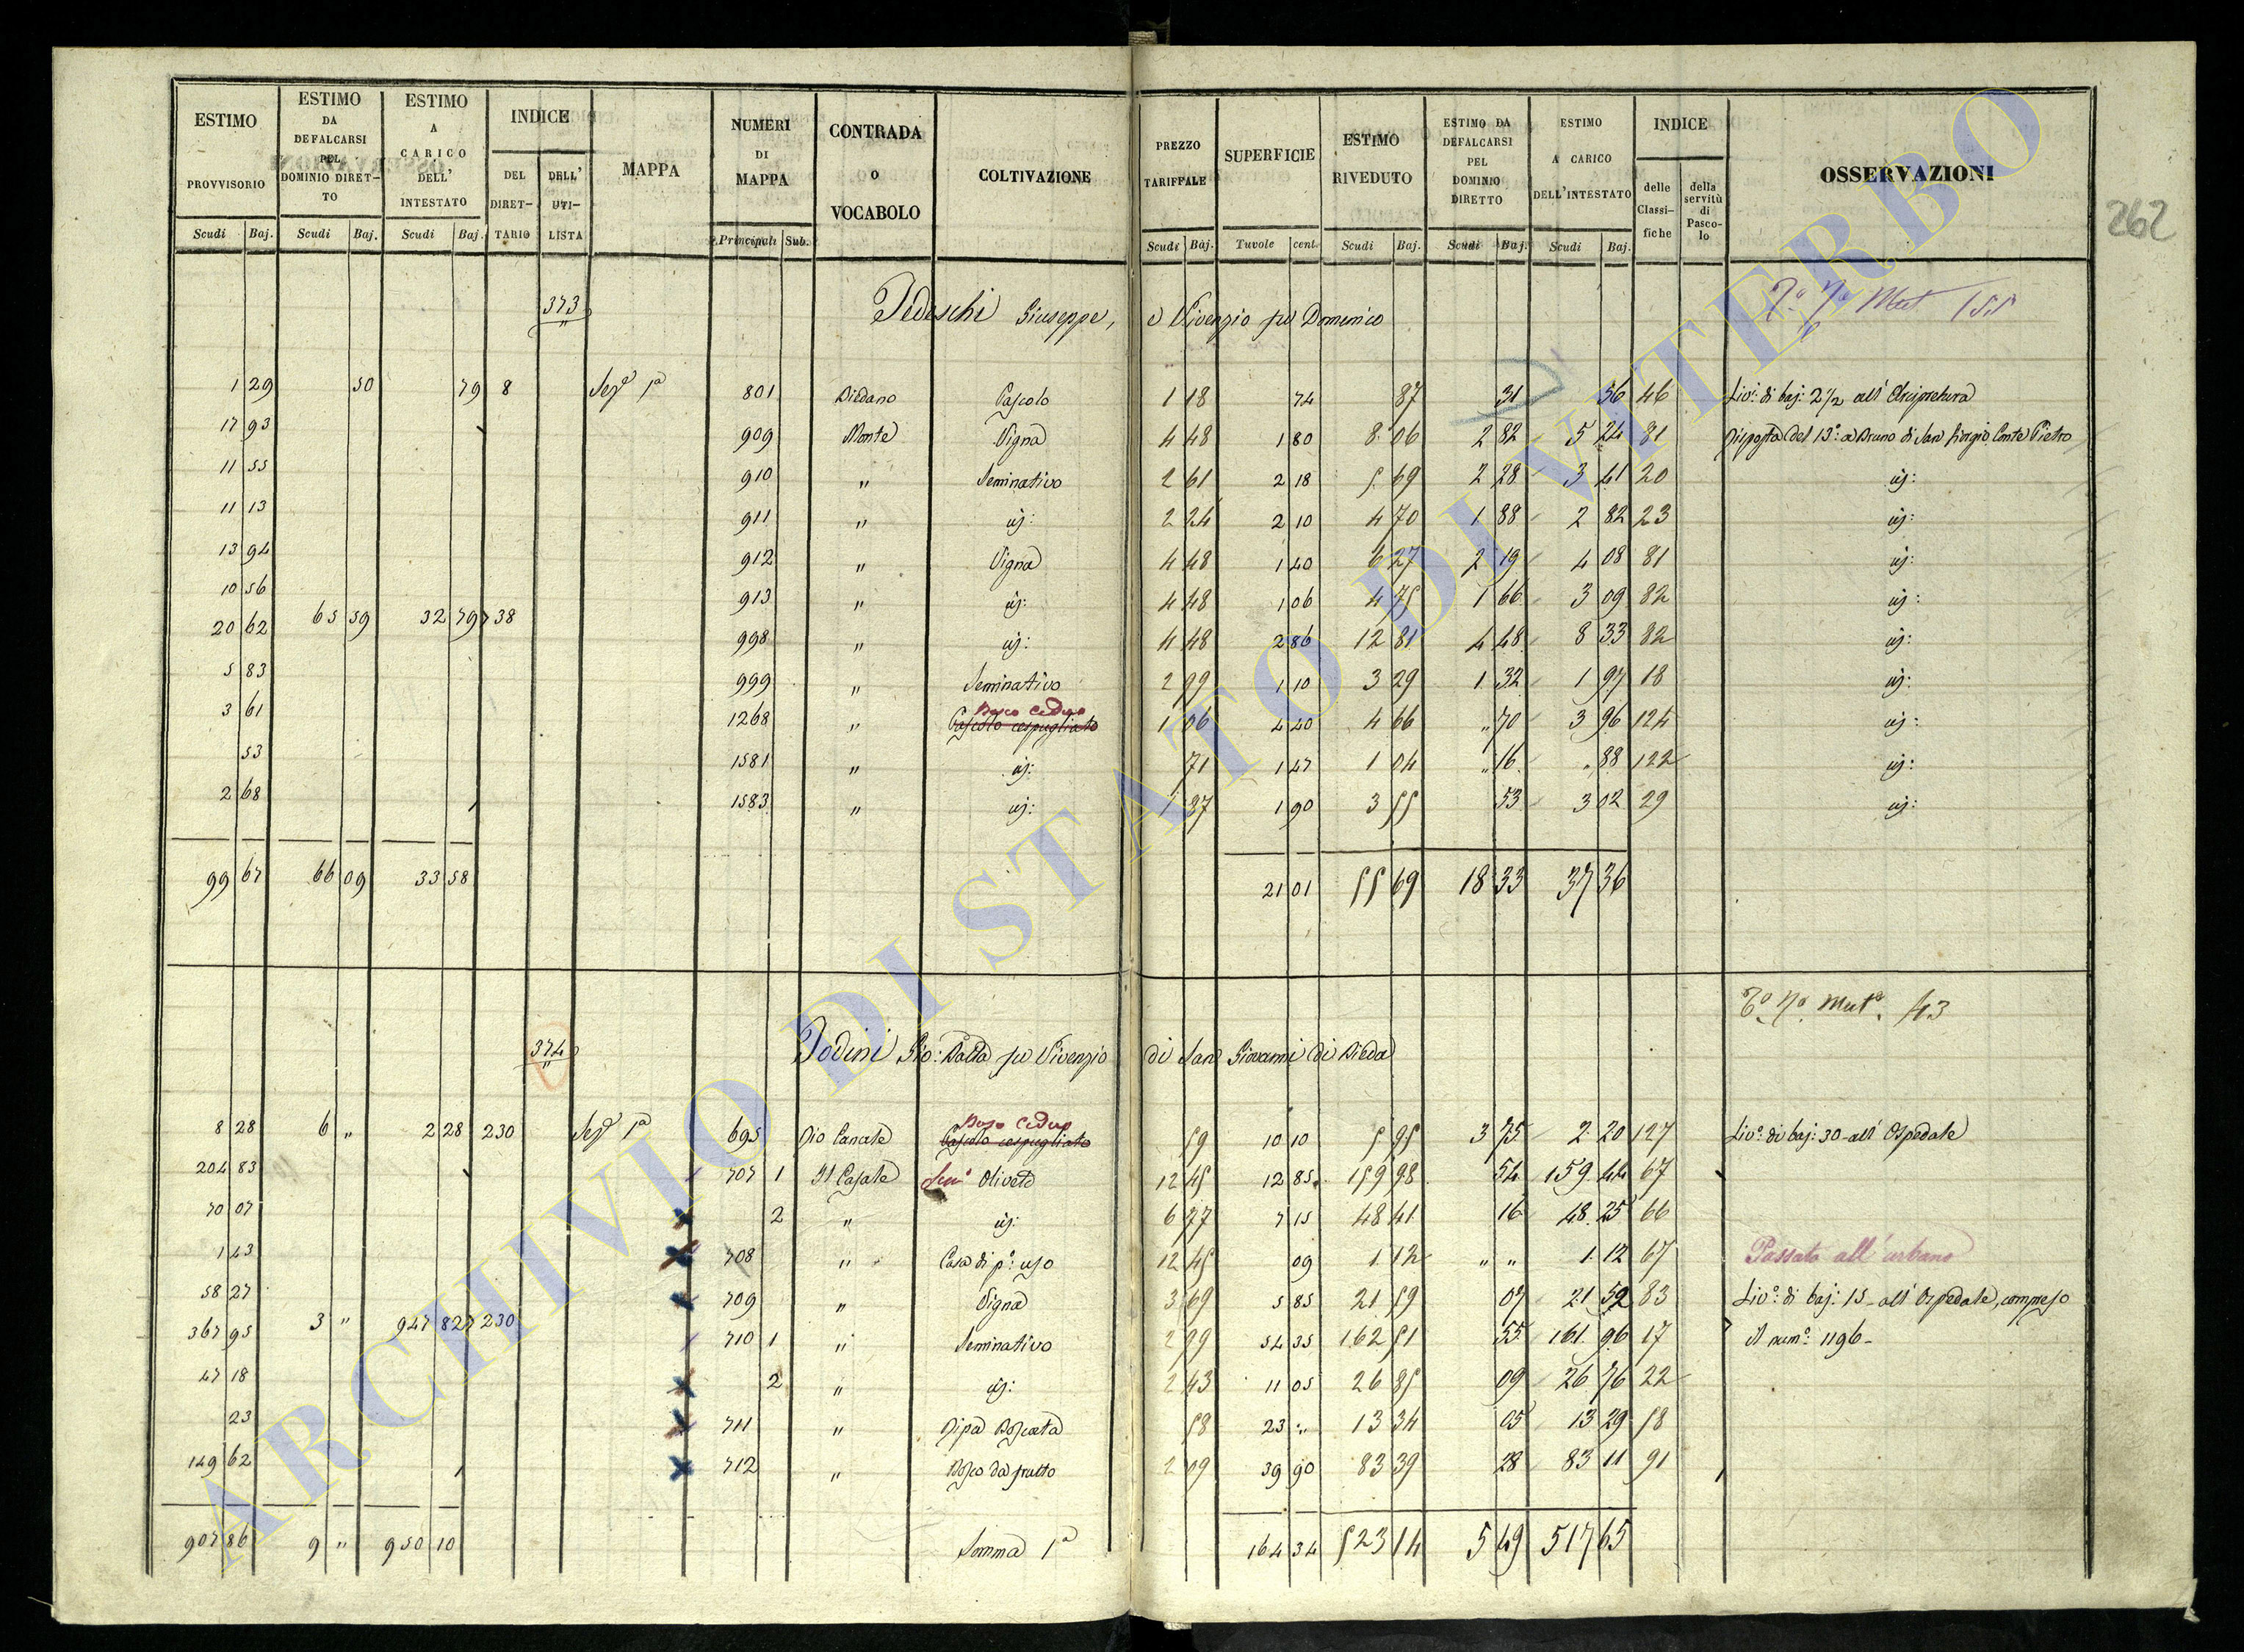 ESTIMO PROVVISORIO Scudi Baj.
ESTIMO DA DEFALCARSI PEL DOMINIO DIRET-TO Scudi Baj.
ESTIMO A CARICO DELL' INTESTATO Scudi Baj.
INDICE DEL DIRET-TARIO DELL' UTI-LISTA
MAPPA
NUMERI DI MAPPA Principali Sub.
CONTRADA O VOCABOLO
COLTIVAZIONE
PREZZO TARIFFALE Scudi Baj.
SUPERFICIE Tavole cent.
ESTIMO RIVEDUTO Scudi Baj.
ESTIMO DA DEFALCARSI PEL DOMINIO DIRETTO Scudi Baj.
ESTIMO A CARICO DELL'INTESTATO Scudi Baj.
INDICE delle Classi-fiche della servitù di Pasco-lo
OSSERVAZIONI
262
373 Tedeschi Giuseppe, e Vivenzio fu Domenico
1 29 50 79 8 Seze 1a 801 Biedano Pascolo 1 18 74 87 31 56 46 Livo: di baj: 2 1/2 all' Arcipretura
17 93 909 Monte Vigna 4 48 1 80 8 06 2 82 5 24 81 Risposta del 13o: a Bruno di San Giorgio Conte Pietro
11 55 910 " Seminativo 2 61 2 18 5 69 2 28 3 41 20 id:
11 13 911 " id: 2 24 2 10 4 70 1 88 2 82 23 id:
13 94 912 " Vigna 4 48 1 40 6 27 2 19 4 08 81 id:
10 56 913 " id: 4 48 1 06 4 75 1 66 3 09 82 id:
65 59 32 79 738
20 62 998 " id: 4 48 2 86 12 81 4 48 8 33 82 id:
5 83 999 " Seminativo 2 99 1 10 3 29 1 32 1 97 18 id:
Bosco Ceduo
3 61 1268 " Pascolo cespugliato 1 06 4 40 4 66 " 70 3 96 124 id:
53 1581 " id: 71 1 47 1 04 " 16 " 88 122 id:
2 68 1583 " id: 1 87 1 90 3 55 53 3 02 29 id:
99 67 66 09 33 58 21 01 55 69 18 33 37 36
Mut 43
374 Todini Gio: Batta fu Vivenzio di San Giovanni di Bieda
Bosco Ceduo
8 28 6 " 2 28 230 Sezе 1a 695 Rio Canale Pascolo cespugliato 59 10 10 5 95 3 75 2 20 127 Livo: di baj: 30 all' Ospedale
204 83 707 1 Il Casale Semo Olivato 12 45 12 85 159 98 54 159 44 67
70 07 2 " id: 6 77 7 15 48 41 16 48 25 66
1 43 708 " Casa di po: uso 12 45 09 1 12 " " 1 12 67 Passato all' urbano
58 27 709 " Vigna 3 69 5 85 21 59 07 21 52 83 Livo: di baj: 15 all' Ospedale, compreso
3 " 947 827 230
367 95 710 1 " Seminativo 2 99 54 35 162 51 55 161 96 17 il numo: 1196
47 18 2 " id: 2 43 11 05 26 85 09 26 76 22
23 711 " Ripa Boscata 58 23 " 13 34 05 13 29 58
149 62 712 " Bosco da frutto 2 09 39 90 83 39 28 83 11 91
907 86 9 " 950 10 Somma 1a 164 34 523 14 5 49 517 65
ARCHIVIO DI STATO DI VITERBO